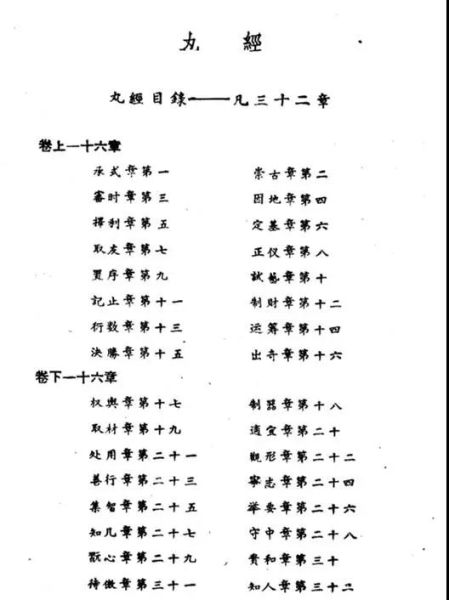 丸經
丸經目錄——凡三十二章
卷上一十六章
承式章第一 崇古章第二
審时章第三 因地章第四
擇利章第五 定基章第六
取友章第七 正仪章第八
置序章第九 試藝章第十
記止章第十一 制財章第十二
衍数章第十三 运筹章第十四
決勝章第十五 出奇章第十六
卷下一十六章
权輿章第十七 制器章第十八
取材章第十九 適宜章第二十
处用章第二十一 觀形章第二十二
善行章第二十三 寧志章第二十四
集智章第二十五 举要章第二十六
知几章第二十七 守中章第二十八
翫心章第二十九 貴和章第三十
待傲章第三十一 知人章第三十二